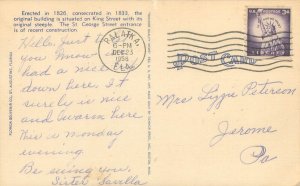 Erected in 1826, consecrated in 1833, the
original building is situated on King Street with its
original steeple. The St. George Street entrance
is of recent construction.
Hello, Just
you know
had a nice
down here. It
surely is nice
and warm here
this is monday
evening.
Be seeing you,
Sister Savilla
PALATKA
6-PM
DEC 23
1958
FLA.
POST CARD
Mrs Lizzie Peterson
Jerome
Pa